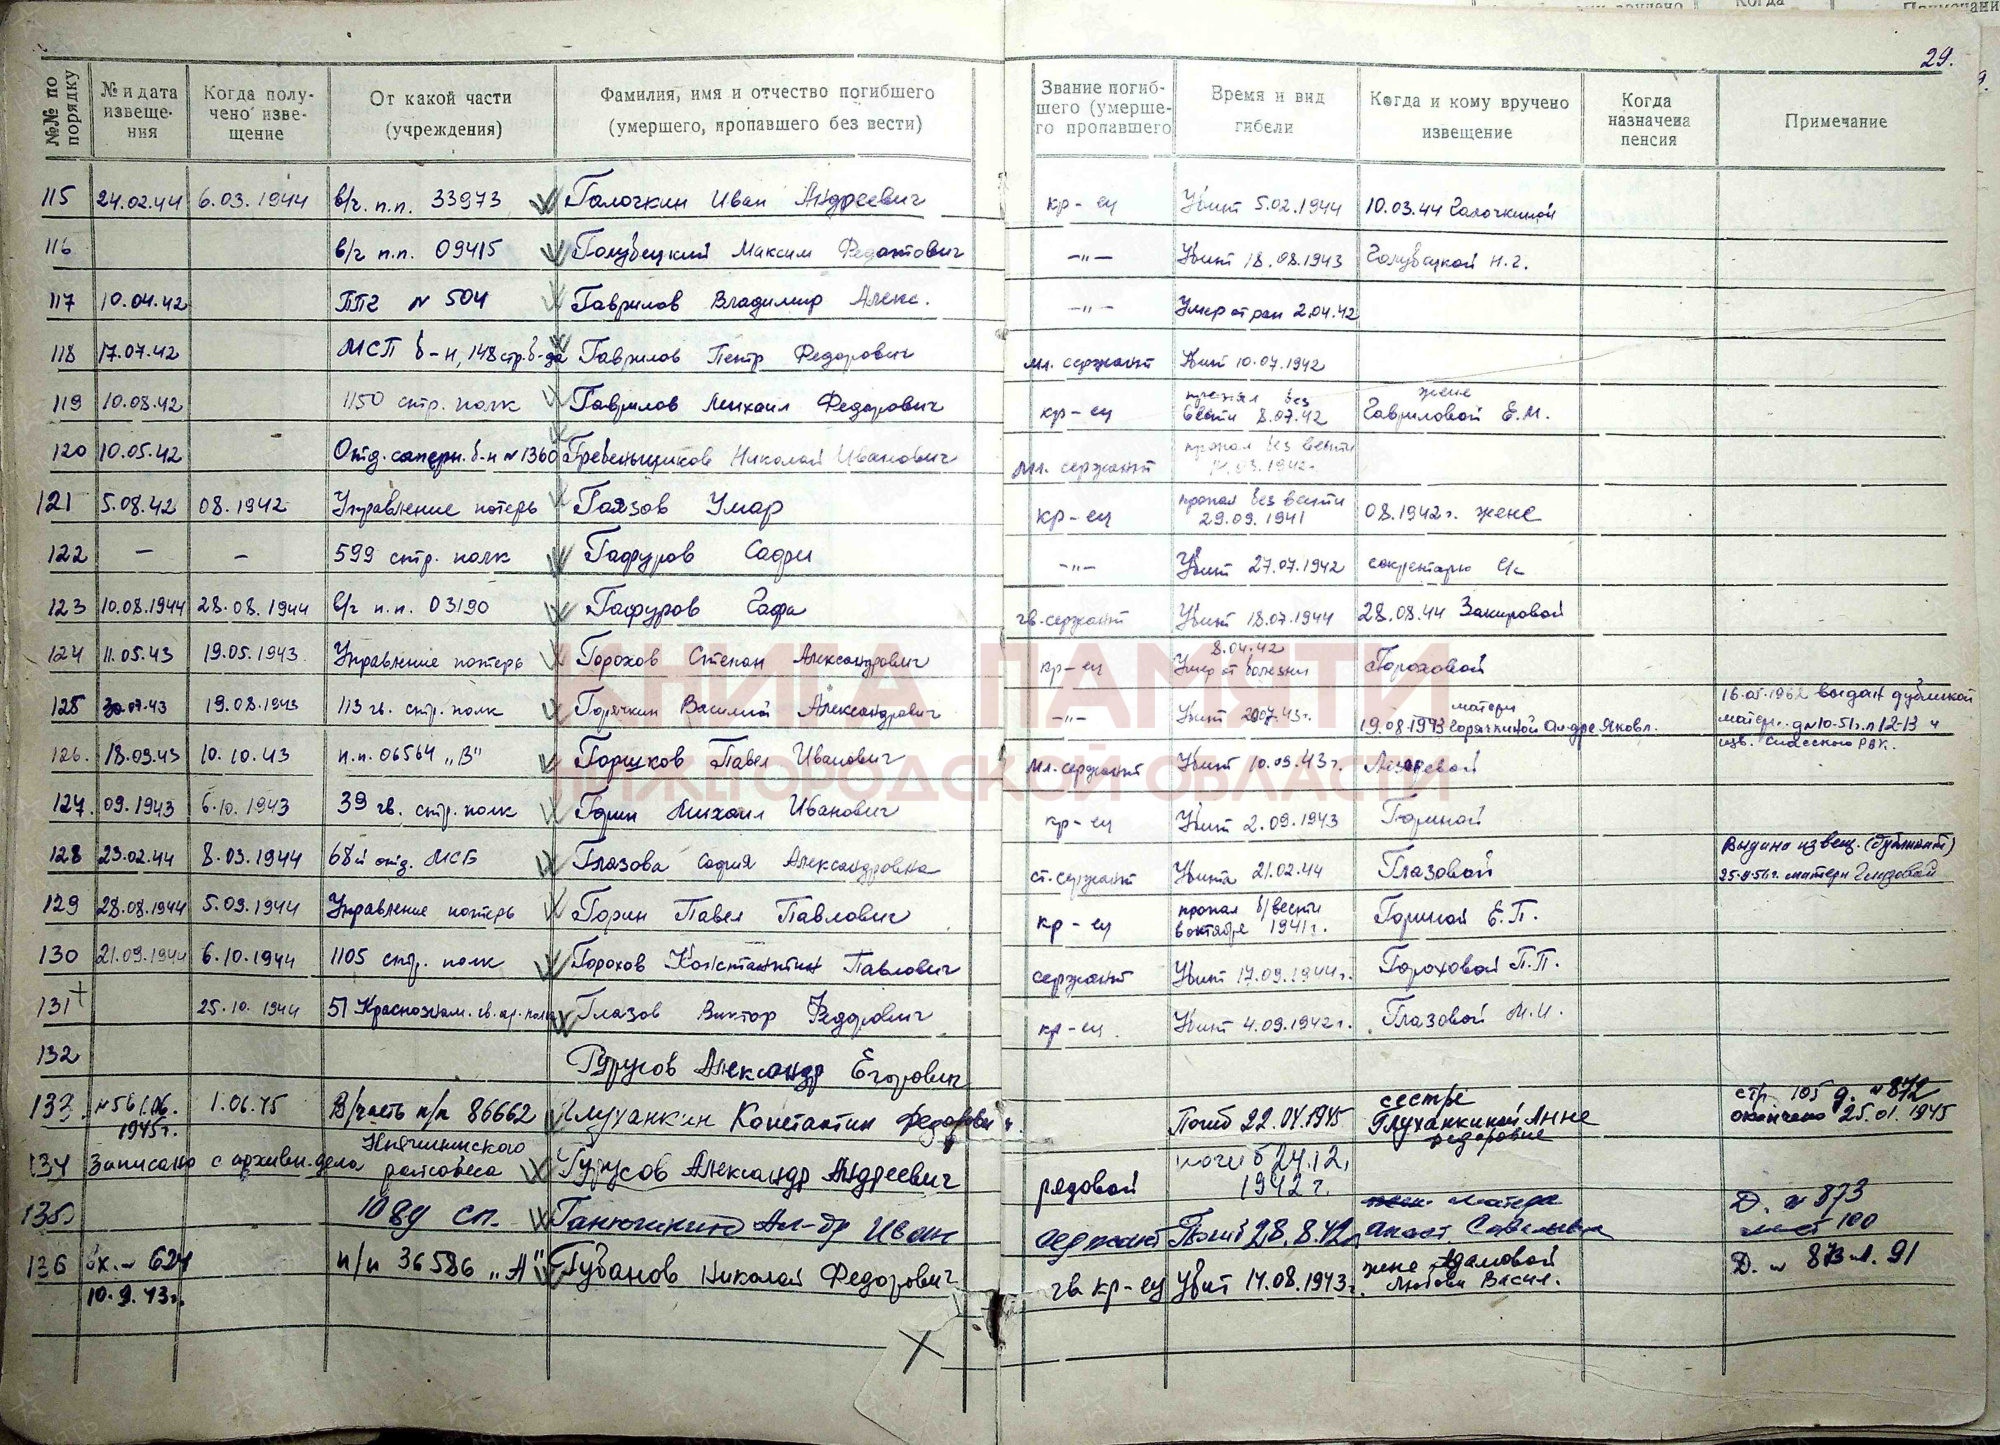 29.
№№ по порядку | № и дата извеще- ния | Когда полу- чено изве- щение | От какой части (учреждения) | Фамилия, имя и отчество погибшего (умершего, пропавшего без вести) | Звание погиб- шего (умерше- го пропавшего | Время и вид гибели | Когда и кому вручено извещение | Когда назначена пенсия | Примечание
115 | 24.02.44 | 6.03.1944 | в/ч. п.п. 33973 | Галочкин Иван Андреевич | кр-ец | Убит 5.02.1944 | 10.03.44 Галочкиной
116 | в/ч п.п. 09415 | Голубецкий Максим | -"- | Убит 18.08.1943 | Голубецкой Н.Г.
117 | 10.04.42 | ППГ № 504 | Гаврилов Владимир Алекс. | -"- | Умер от ран 2.04.42
118 | 17.07.42 | МСП б-н, 148 стр. б-да | Гаврилов Петр Федорович | мл. сержант | Убит 10.07.1942
119 | 10.08.42 | 1150 стр. полк | Гаврилов Михаил Федорович | кр-ец | пропал без вести 8.07.42 | жене Гавриловой Е.М.
120 | 10.05.42 | Отд. саперн. б-н № 1360 | Гребенщиков Николай Иванович | мл. сержант | пропал без вести .03.1942г.
121 | 5.08.42 | 08.1942 | Управление потерь | Гаязов Умар | кр-ец | пропал без вести 29.09.1941 | 08.1942г. жене
122 | — | — | 599 стр. полк | Гафуров Сафи | -"- | Убит 27.07.1942 | секретарю с/с
123 | 10.08.1944 | 28.08.1944 | в/ч п.п. 03190 | Гафуров Гафа | гв. сержант | Убит 18.07.1944 | 28.08.44 Закировой
124 | 11.05.43 | 19.05.1943 | Управление потерь | Горохов Степан Александрович | кр-ец | 8.04.42 Умер от болезни | Гороховой
125 | 30.07.43 | 19.08.1943 | 113 гв. стр. полк | Горячкин Василий Александрович | -"- | Убит 20.07.43г. | матери 19.08.1943 Горячкиной Ал-дре Яковл. | 16.05.1962 выдан дубликат матери. д № 10-51г. л 12-13 ч изв. Спасского РВК.
126. | 18.09.43 | 10.10.43 | п.п. 06564 „В" | Горшков Павел Иванович | мл. сержант | Убит 10.09.43г. | Лазаревой
127. | 09.1943 | 6.10.1943 | 39 гв. стр. полк | Горин Михаил Иванович | кр-ец | Убит 2.09.1943 | Гориной
128 | 23.02.44 | 8.03.1944 | 68й отд. МСБ | Глазова София Александровна | ст. сержант | Убита 21.02.44 | Глазовой | Выдано извещ. (дубликат) 25.II-56г. матери Глазовой
129 | 28.08.1944 | 5.09.1944 | Управление потерь | Горин Павел Павлович | кр-ец | пропал б/вести в октябре 1941г. | Гориной Е.П.
130 | 21.09.1944 | 6.10.1944 | 1105 стр. полк | Горохов Константин Павлович | сержант | Убит 17.09.1944г. | Гороховой П.П.
131+ | 25.10.1944 | 51 Краснознам. гв. ар. полк | Глазов Виктор Федорович | кр-ец | Убит 4.09.1942г. | Глазовой М.И.
132 | Гурусов Александр Егорович
133 | № 56 1.06. 1945г. | 1.06.45 | В/часть п/п 86662 | Глуханкин Константин Федорович | Погиб 22.04.1945 | сестре Глуханкиной Анне Федоровне | стр. 105 д. № 872 окончено 25.01.1945
134 | Записано с архивн. дела райсовеса | Гурусов Александр Андреевич | рядовой | погиб 24.12, 1942г.
135 | 1089 сп. | Ганюшкин Ал-др Иван | сержант | Погиб 28.8.42г. | матери | Д. № 873 лист 100
136 | вх. № 624 10.9.43г. | п/п 36586 „А" | Губанов Николай Федорович | гв. кр-ец | Убит 14.08.1943г. | жене Адамовой Любови Васил. | Д. № 873 л. 91
КНИГА ПАМЯТИ
НИЖЕГОРОДСКОЙ ОБЛАСТИ